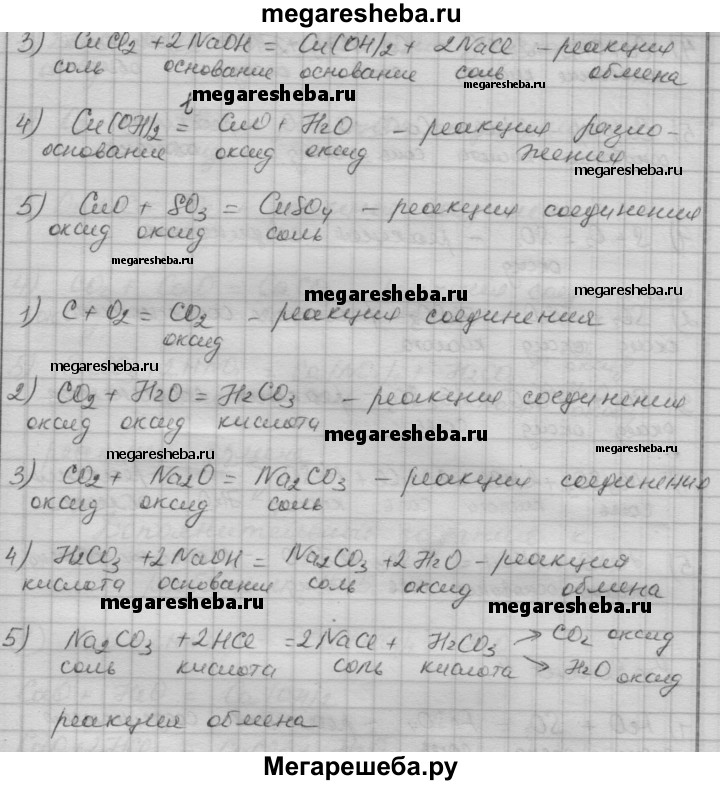 megaresheba.ru
3) CuCl2 + 2NaOH = Cu(OH)2 + 2NaCl – реакция
соль основание основание соль обмена
megaresheba.ru megaresheba.ru
4) Cu(OH)2 t= CuO + H2O – реакция разло-
основание оксид оксид жения
megaresheba.ru
5) CuO + SO3 = CuSO4 – реакция соединения
оксид оксид соль
megaresheba.ru
megaresheba.ru megaresheba.ru
1) C + O2 = CO2 – реакция соединения
оксид
megaresheba.ru
2) CO2 + H2O = H2CO3 – реакция соединения
оксид оксид кислота
megaresheba.ru megaresheba.ru megaresheba.ru
3) CO2 + Na2O = Na2CO3 – реакция соединения
оксид оксид соль
4) H2CO3 + 2NaOH = Na2CO3 + 2H2O – реакция
кислота основание соль оксид обмена
megaresheba.ru megaresheba.ru
5) Na2CO3 + 2HCl = 2NaCl + H2CO3 → CO2 оксид
соль кислота соль кислота → H2O оксид
реакция обмена
Мегарешеба.ру